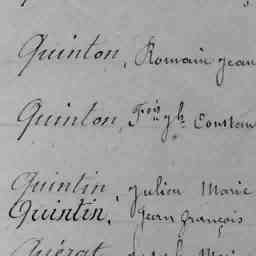 Quinton, Romain Jean
Quinton, Constan
Quintin, Julien Marie
Quintin, Jean François
Quérat